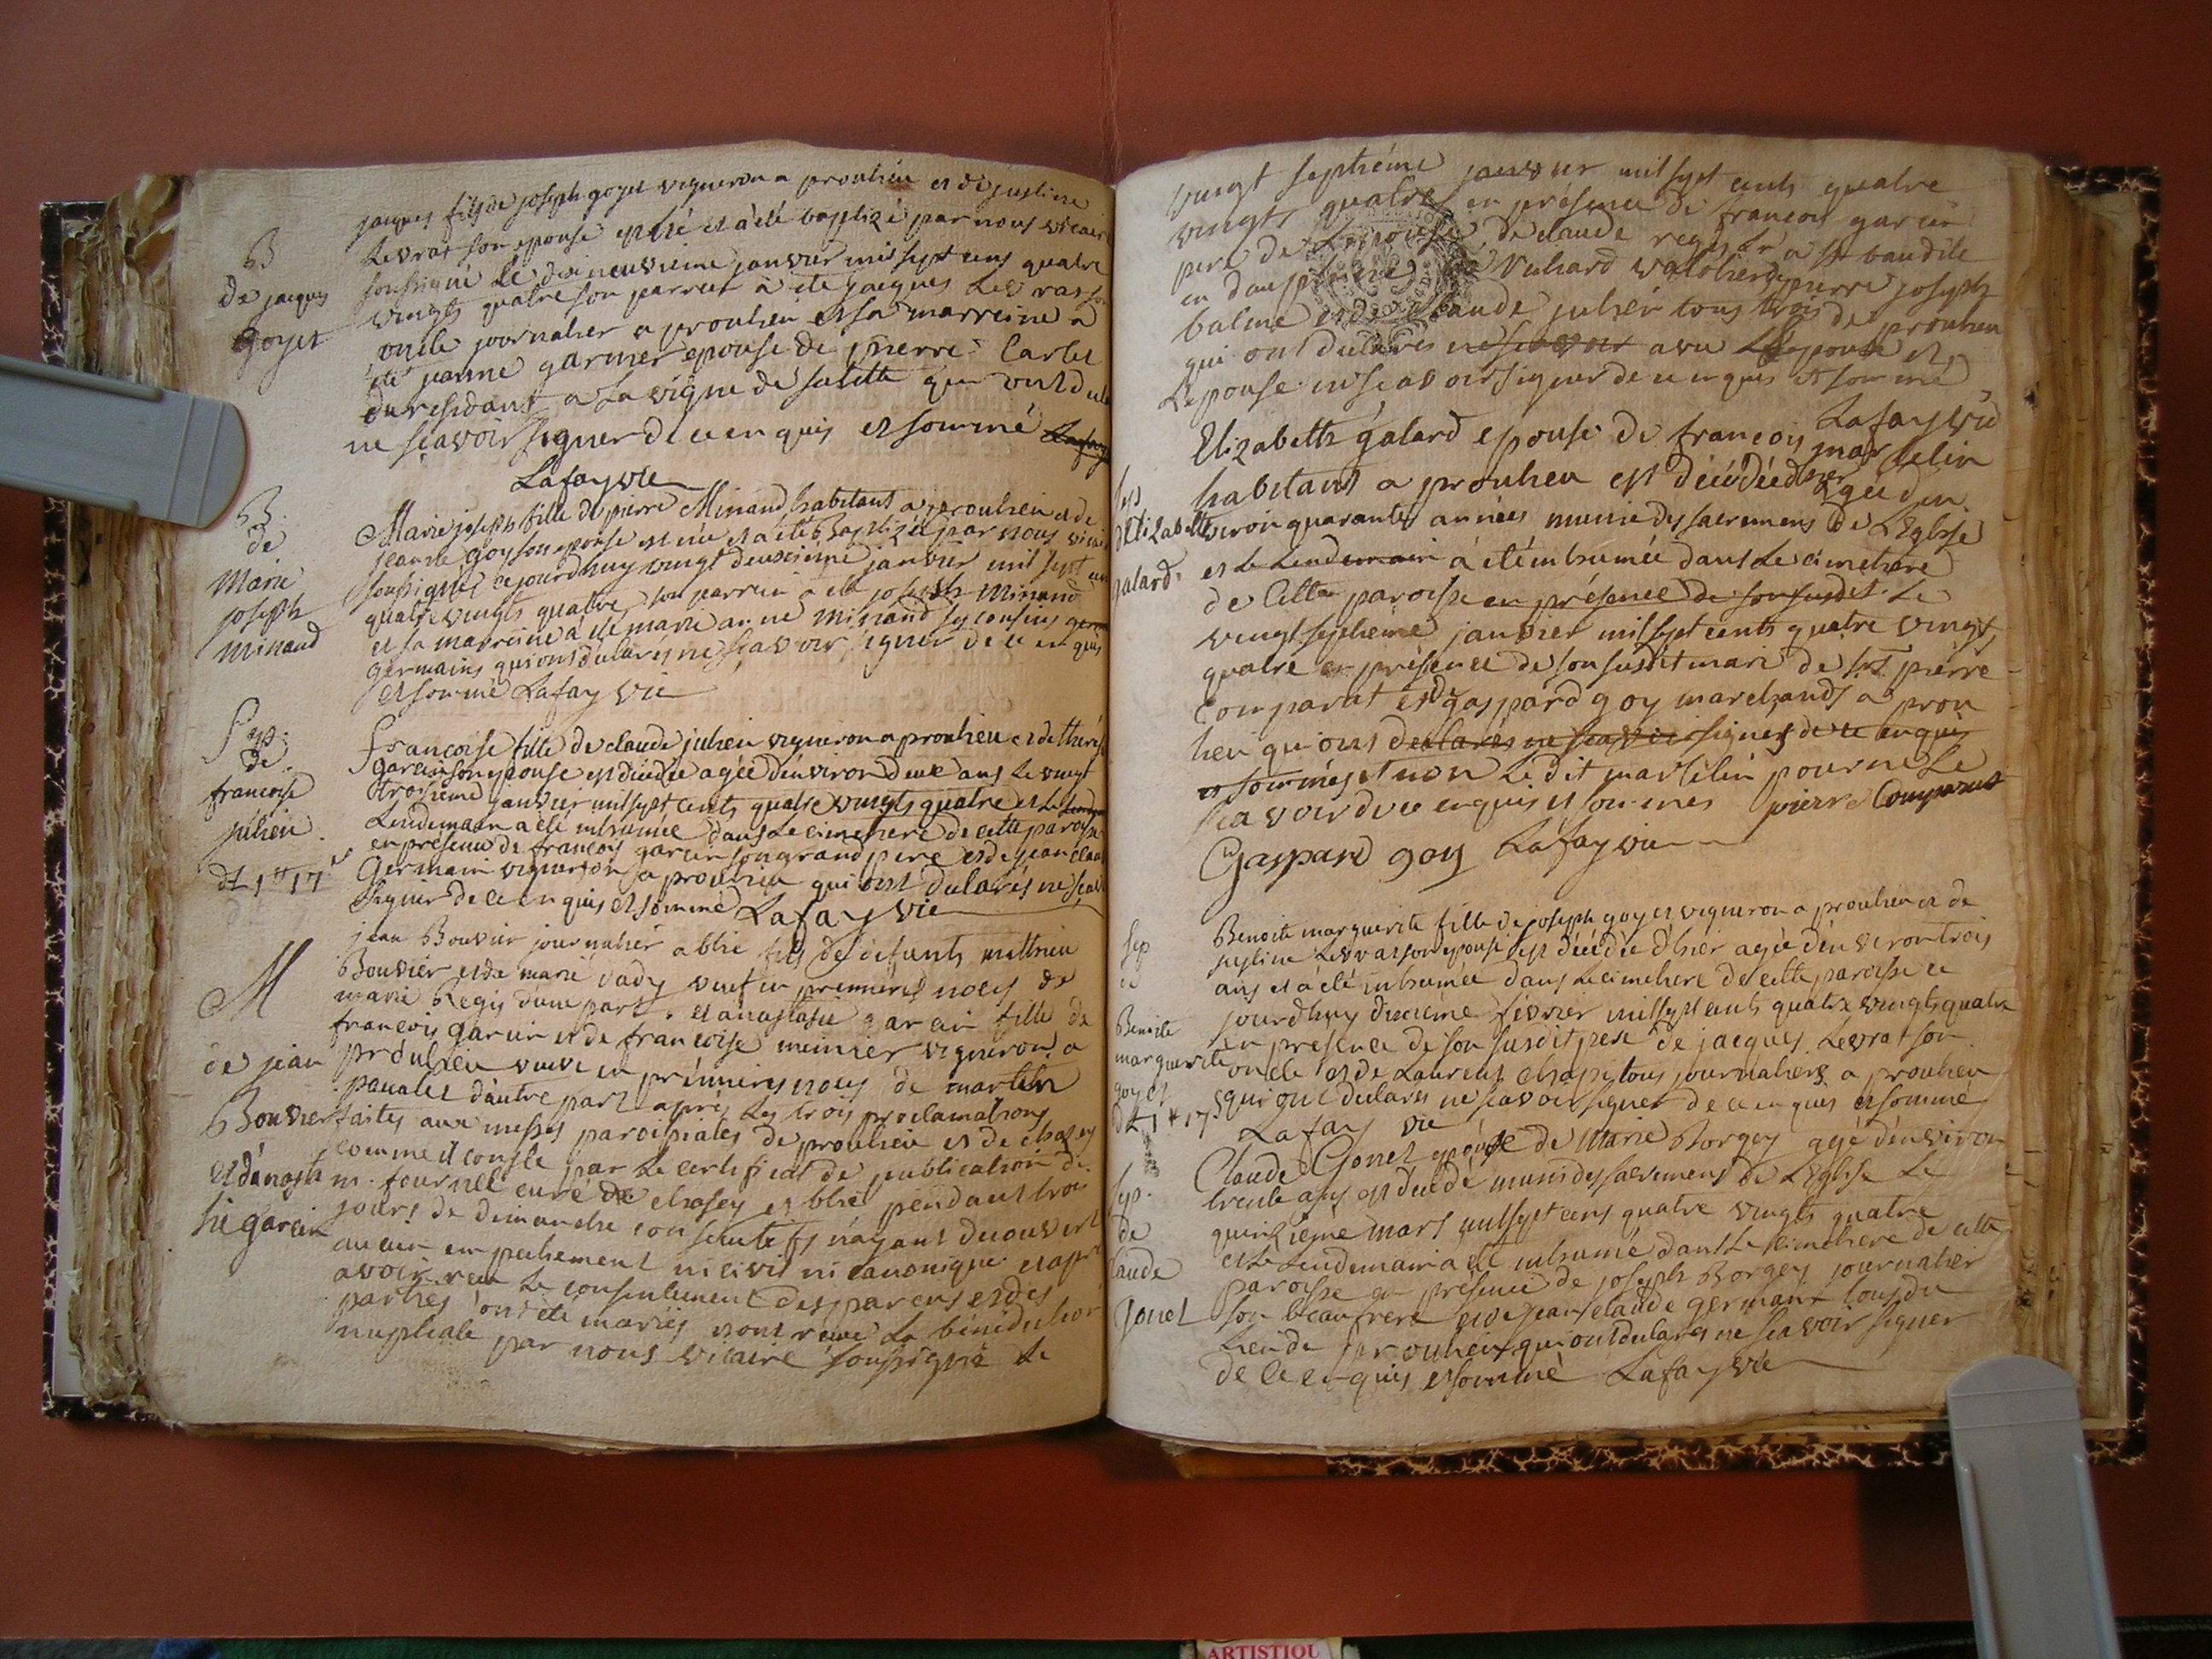 B
de jacques
goyet
jacques fils de joseph goyet vigneron a proulieu et de justine
Levrat son epouse est né et a été baptizé par nous vicaire
soussigné le dix neuvieme janvier mil sept cens quatre
vingts quatre son parrein a été jacques Levrat son
oncle journalier a proulieu et sa marreine a
été jeanne garnier epouse de pierre Carlet
du residant a La vigne de salette qui ont
ne sçavoir signer de ce enquis et sommé
Lafay vic
B.
de
Marie
joseph
minand
Marie joseph fille de pierre Minand habitant a proulieu et de
jeanne goy son epouse est née et a été Baptizée par nous
soussigné ce jourdhuy vingt deuxieme janvier mil sept
quatre vingts quatre, son parrein a été joseph Minand
et sa marreine a été marie anne minand ses cousins
germains qui ont declarés ne sçavoir signer de ce enquis
et sommé Lafay vic
Sep.
de
francoise
julien
francoise fille de claude julien vigneron a proulieu et de
garcin son epouse est décédée agée d'environ deux ans le vingt
troisieme janvier mil sept cents quatre vingts quatre et le
Lendemain a été inhumée dans le cimetiere de cette paroisse
en présence de francois garcin son grand pere et de jean
Germain vigneron a proulieu qui ont declarés ne
signer de ce enquis et sommé Lafay vic
M
de jean
Bouvier
et d'anasta
sie garcin
jean Bouvier journalier a blie fils de defunts mathieu
Bouvier et de marie vady veuf en premieres noces de
marie Regis d'une part, et anastasie garcin fille de
francois garcin et de francoise meinier vigneron a
proulieu veuve en premieres noces de martelin
d'autre part apres les trois proclamations
faites aux messes paroissiales de proulieu et de chazey
comme il conste par le certificat de publication de
m. fournel curé de chasey et blie pendant trois
jours de dimanche consecutifs n'ayant decouvert
aucun empechement ni civil ni canonique et apres
avoir reçu le consentement des parens et des
parties ont été mariés et ont reçu la bénédiction
nuptiale par nous vicaire soussigné le
vingt septiéme janvier mil sept cents quatre
vingts quatre en présence de francois garcin
pere de L'epouse de claude regis Lr a st baudile
en dauphine de Vuliard valoherde pierre joseph
balme et de claude julien tous trois de proulieu
qui ont declarés ne scavoir avec L'epoux et
L'epouse ne scavoir signer de ce enquis et sommé
Lafay vic
d'Elizabeth
galard.
Elizabeth galard epouse de francois marcelin
habitant a proulieu est décédée hier agée d'en
viron quarante années munie des sacremens de L'Eglise
et le Lendemain a été inhumée dans Le cimetiere
de Cette paroisse en présence de son susdit Le
vingt septieme janvier mil sept cents quatre vingt
quatre en présence de son susdit mari de sr pierre
Comparat et gaspard goy marchands a prou
lieu qui ont declarés ne scavoir signés de ce enquis
et sommés et non Le dit marcelin pour ne Le
sçavoir de ce enquis et sommés pierre Comparat
Gaspard goy Lafay vic
Sep
de
Benoite
marguerite
goyet
Benoite marguerite fille de joseph goyet vigneron a proulieu et de
justine Levrat son epouse est décédée d'hier agée d'environ trois
ans et a été inhumée dans le cimetiere de cette paroisse ce
jourdhuy dixiéme février mil sept cents quatre vingts quatre
en presence de son susdit pere de jacques Levrat son
oncle et de Laurent chapi tous journaliers a proulieu
qui ont declarés ne scavoir signer de ce enquis et sommé
Lafay vic
Sep.
de
laude
Gonet
Claude Gonet epoux de Marie Borgey agé d'environ
trente ans est décédé muni des sacremens de L'Eglise Le
quinzieme mars mil sept cens quatre vingts quatre
et le Lendemain a été inhumé dans Le cimetiere de cette
paroisse en présence de joseph Borgey journalier
son beaufrere et de jean claude germain tous du
Lieu de proulieu qui ont declarés ne sca voir signer
de ce enquis et sommé Lafay vic
ARTISTIQU